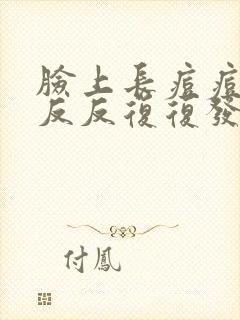 臉上長痘痘
反反復復發
付鳳